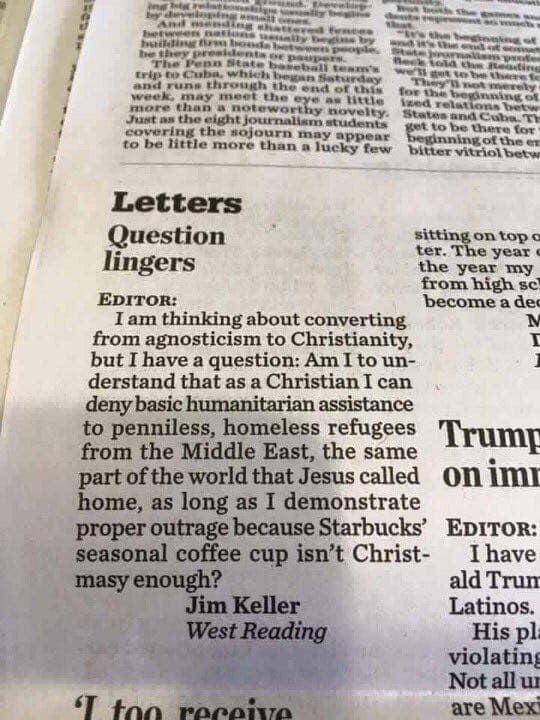 by developing small ones.
And mending shattered fences
between nations usually begins by
building firm bonds between people,
be they presidents or paupers.
The Penn State baseball team's
trip to Cuba, which began Saturday
and runs through the end of this
week, may meet the eye as little
more than a noteworthy novelty.
Just as the eight journalism students
covering the sojourn may appear
to be little more than a lucky few
"It's the beginning of
and it's the end of
state journalism
Beck told the Reading
we'll get to be there
They'll not merely
for the beginning of
ized relations betw
States and Cuba. Th
get to be there for
beginning of the en
bitter vitriol betw
Letters
Question
lingers
EDITOR:
I am thinking about converting
from agnosticism to Christianity,
but I have a question: Am I to un-
derstand that as a Christian I can
deny basic humanitarian assistance
to penniless, homeless refugees
from the Middle East, the same
part of the world that Jesus called
home, as long as I demonstrate
proper outrage because Starbucks'
seasonal coffee cup isn't Christ-
masy enough?
Jim Keller
West Reading
'I too receive
sitting on top o
ter. The year
the year my
from high sch
become a dec
M
Trump
on imm
EDITOR:
I have
ald Trum
Latinos.
His pla
violating
Not all un
are Mexi